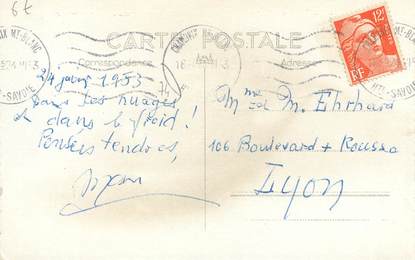 6€
CARTE POSTALE
Correspondance
Adresse
CHAMONIX MT-BLANC
HTE-SAVOIE
12F
RF
24 janv 1953
Dans les nuages
et dans le froid!
Pensées tendres,
74
Mme et M. Ehrhard
106 Boulevard + Rousse
Lyon